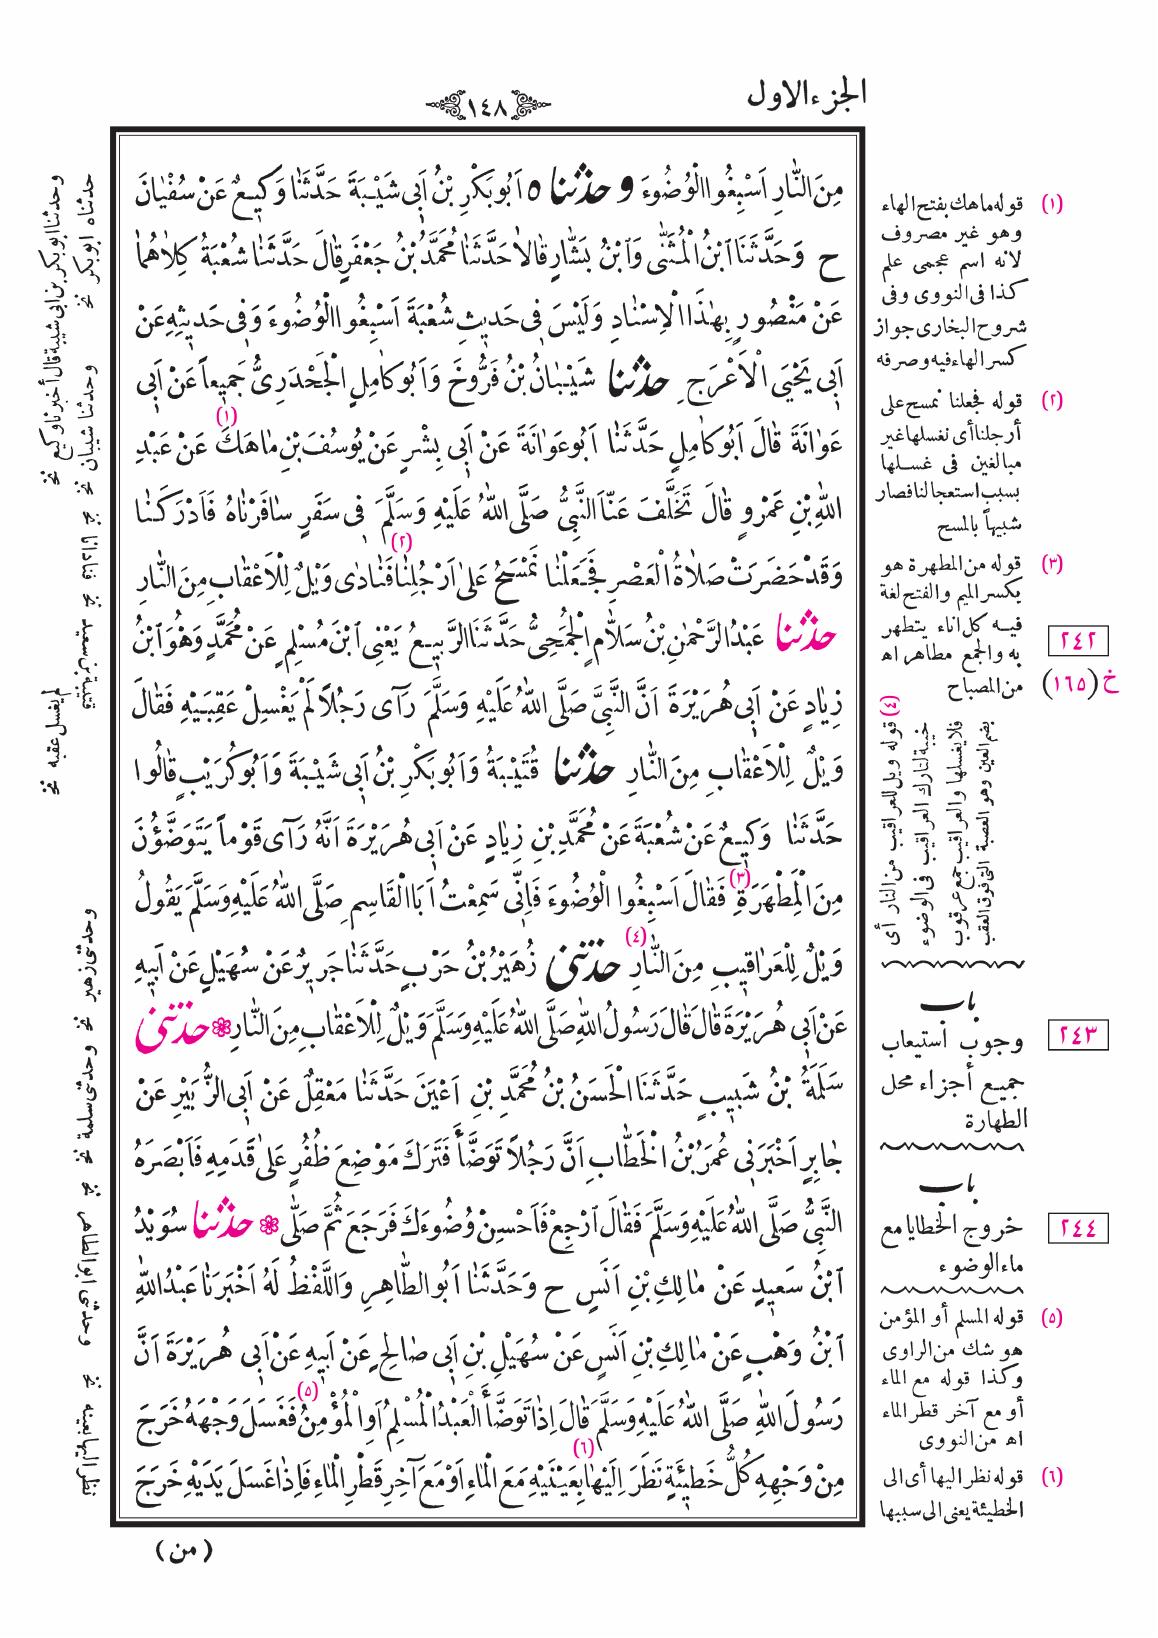 الجزء الاول
١٤٨
مِنَ النَّارِ اَسْبِغُوا الْوُضُوءَ و حدثنا ه اَبُو بَكْرِ بْنُ اَبِى شَيْبَةَ حَدَّثَنَا وَكِيعٌ عَنْ سُفْيَانَ
ح وَحَدَّثَنَا ابْنُ الْمُثَنَّى وَابْنُ بَشَّارٍ قَالَا حَدَّثَنَا مُحَمَّدُ بْنُ جَعْفَرٍ قَالَ حَدَّثَنَا شُعْبَةُ كِلَاهُمَا
عَنْ مَنْصُورٍ بِهٰذَا الْاِسْنَادِ وَلَيْسَ فِى حَدِيثِ شُعْبَةَ اَسْبِغُوا الْوُضُوءَ وَفِى حَدِيثِهِ عَنْ
اَبِى يَحْيَى الْاَعْرَجِ حدثنا شَيْبَانُ بْنُ فَرُّوخَ وَاَبُو كَامِلٍ الْجَحْدَرِىُّ جَمِيعاً عَنْ اَبِى
عَوَانَةَ قَالَ اَبُو كَامِلٍ حَدَّثَنَا اَبُو عَوَانَةَ عَنْ اَبِى بِشْرٍ عَنْ يُوسُفَ بْنِ مَاهَكَ (١) عَنْ عَبْدِ
اللّٰهِ بْنِ عَمْرٍو قَالَ تَخَلَّفَ عَنَّا النَّبِىُّ صَلَّى اللّٰهُ عَلَيْهِ وَسَلَّمَ فِى سَفَرٍ سَافَرْنَاهُ فَاَدْرَكَنَا
وَقَدْ حَضَرَتْ صَلَاةُ الْعَصْرِ فَجَعَلْنَا نَمْسَحُ عَلَى اَرْجُلِنَا (٢) فَنَادَى وَيْلٌ لِلْاَعْقَابِ مِنَ النَّارِ
حدثنا عَبْدُ الرَّحْمٰنِ بْنُ سَلَّامٍ الْجُمَحِىُّ حَدَّثَنَا الرَّبِيعُ يَعْنِى ابْنَ مُسْلِمٍ عَنْ مُحَمَّدٍ وَهُوَ ابْنُ
زِيَادٍ عَنْ اَبِى هُرَيْرَةَ اَنَّ النَّبِىَّ صَلَّى اللّٰهُ عَلَيْهِ وَسَلَّمَ رَآى رَجُلاً لَمْ يَغْسِلْ عَقِبَيْهِ فَقَالَ
وَيْلٌ لِلْاَعْقَابِ مِنَ النَّارِ حدثنا قُتَيْبَةُ وَاَبُو بَكْرِ بْنُ اَبِى شَيْبَةَ وَاَبُو كُرَيْبٍ قَالُوا
حَدَّثَنَا وَكِيعٌ عَنْ شُعْبَةَ عَنْ مُحَمَّدِ بْنِ زِيَادٍ عَنْ اَبِى هُرَيْرَةَ اَنَّهُ رَآى قَوْماً يَتَوَضَّؤُنَ
مِنَ الْمِطْهَرَةِ (٣) فَقَالَ اَسْبِغُوا الْوُضُوءَ فَاِنِّى سَمِعْتُ اَبَا الْقَاسِمِ صَلَّى اللّٰهُ عَلَيْهِ وَسَلَّمَ يَقُولُ
وَيْلٌ لِلْعَرَاقِيبِ مِنَ النَّارِ (٤) حدثنى زُهَيْرُ بْنُ حَرْبٍ حَدَّثَنَا جَرِيرٌ عَنْ سُهَيْلٍ عَنْ اَبِيهِ
عَنْ اَبِى هُرَيْرَةَ قَالَ قَالَ رَسُولُ اللّٰهِ صَلَّى اللّٰهُ عَلَيْهِ وَسَلَّمَ وَيْلٌ لِلْاَعْقَابِ مِنَ النَّارِ ❁ حدثنى
سَلَمَةُ بْنُ شَبِيبٍ حَدَّثَنَا الْحَسَنُ بْنُ مُحَمَّدِ بْنِ اَعْيَنَ حَدَّثَنَا مَعْقِلٌ عَنْ اَبِى الزُّبَيْرِ عَنْ
جَابِرٍ اَخْبَرَنِى عُمَرُ بْنُ الْخَطَّابِ اَنَّ رَجُلاً تَوَضَّأَ فَتَرَكَ مَوْضِعَ ظُفُرٍ عَلَى قَدَمِهِ فَاَبْصَرَهُ
النَّبِىُّ صَلَّى اللّٰهُ عَلَيْهِ وَسَلَّمَ فَقَالَ ارْجِعْ فَاَحْسِنْ وُضُوءَكَ فَرَجَعَ ثُمَّ صَلَّى ❁ حدثنا سُوَيْدُ
ابْنُ سَعِيدٍ عَنْ مَالِكِ بْنِ اَنَسٍ ح وَحَدَّثَنَا اَبُو الطَّاهِرِ وَاللَّفْظُ لَهُ اَخْبَرَنَا عَبْدُ اللّٰهِ
ابْنُ وَهْبٍ عَنْ مَالِكِ بْنِ اَنَسٍ عَنْ سُهَيْلِ بْنِ اَبِى صَالِحٍ عَنْ اَبِيهِ عَنْ اَبِى هُرَيْرَةَ اَنَّ
رَسُولَ اللّٰهِ صَلَّى اللّٰهُ عَلَيْهِ وَسَلَّمَ قَالَ اِذَا تَوَضَّأَ الْعَبْدُ الْمُسْلِمُ اَوِ الْمُؤْمِنُ (٥) فَغَسَلَ وَجْهَهُ خَرَجَ
مِنْ وَجْهِهِ كُلُّ خَطِيئَةٍ نَظَرَ اِلَيْهَا (٦) بِعَيْنَيْهِ مَعَ الْمَاءِ اَوْ مَعَ آخِرِ قَطْرِ الْمَاءِ فَاِذَا غَسَلَ يَدَيْهِ خَرَجَ
(من)
(١) قوله ماهك بفتح الهاء
وهو غير مصروف
لانه اسم عجمى علم
كذا فى النووى وفى
شروح البخارى جواز
كسر الهاء فيه وصرفه
(٢) قوله فجعلنا نمسح على
أرجلنا أى نغسلها غير
مبالغين فى غسلها
بسبب استعجالنا فصار
شبيهاً بالمسح
(٣) قوله من المطهرة هو
بكسر الميم والفتح لغة
فيه كل اناء يتطهر
به والجمع مطاهر اه
من المصباح
٢٤٢
خ (١٦٥)
(٤) قوله ويل للعراقيب من النار أى
خيبة لتارك العراقيب فى الوضوء
فلا يغسلها والعراقيب جمع عرقوب
بضم العين وهو العصبة التى فوق العقب
باب
٢٤٣
وجوب استيعاب
جميع أجزاء محل
الطهارة
باب
٢٤٤
خروج الخطايا مع
ماء الوضوء
(٥) قوله المسلم أو المؤمن
هو شك من الراوى
وكذا قوله مع الماء
أو مع آخر قطر الماء
اه من النووى
(٦) قوله نظر اليها أى الى
الخطيئة يعنى الى سببها
حدثناه ابوبكر نخ وحدثنا شيبان نخ
وحدثنا ابوبكر بن ابى شيبة قال أخبرنا وكيع نخ
قتيبة بن سعيد نخ فنادانا نخ
لم يغسل عقبه نخ
وحدثنى زهير نخ وحدثنى سلمة نخ
وحدثنى ابو الطاهر نخ
نظر اليها بعينه نخ